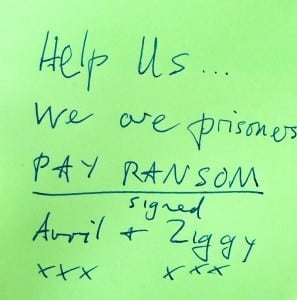 Help Us...
We are prisoners
PAY RANSOM
signed
Avril + Ziggy
xxx xxx